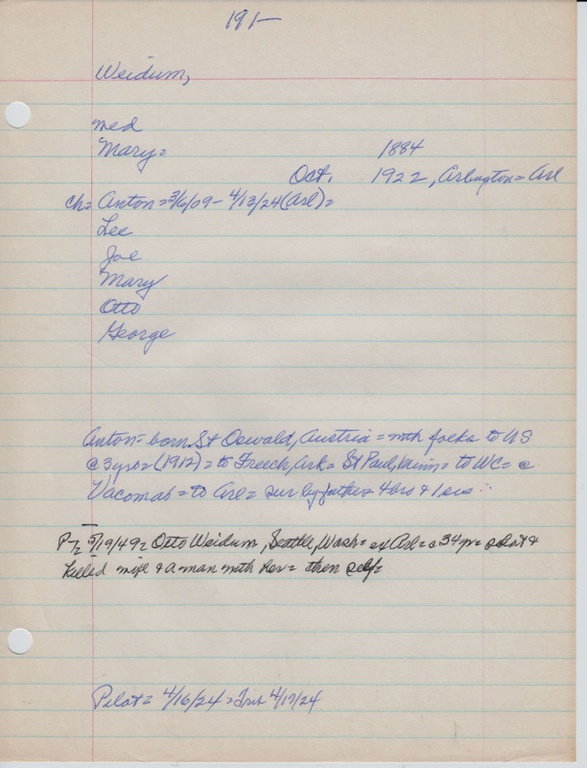 191-
Weidum,
med
Mary=
1884
Oct. 1922, Arlington = Arl
ch= Anton = 3/6/09 - 4/13/24 (Arl) =
Lee
Joe
Mary
Otto
George
Anton = born St Oswald, Austria = with folks to US
@ 3 yrs = (1912) = to Freech, Ark = St Paul, Minn = to WC = @
Yacomab = to Arl = sur by father 4 brs & 1 sis
P-I 5/19/49 = Otto Weidum, Seattle, Wash = ex Arl = @ 34 yr = shot &
killed wife & a man with her = then self =
Pilot = 4/16/24 = Trib 4/17/24